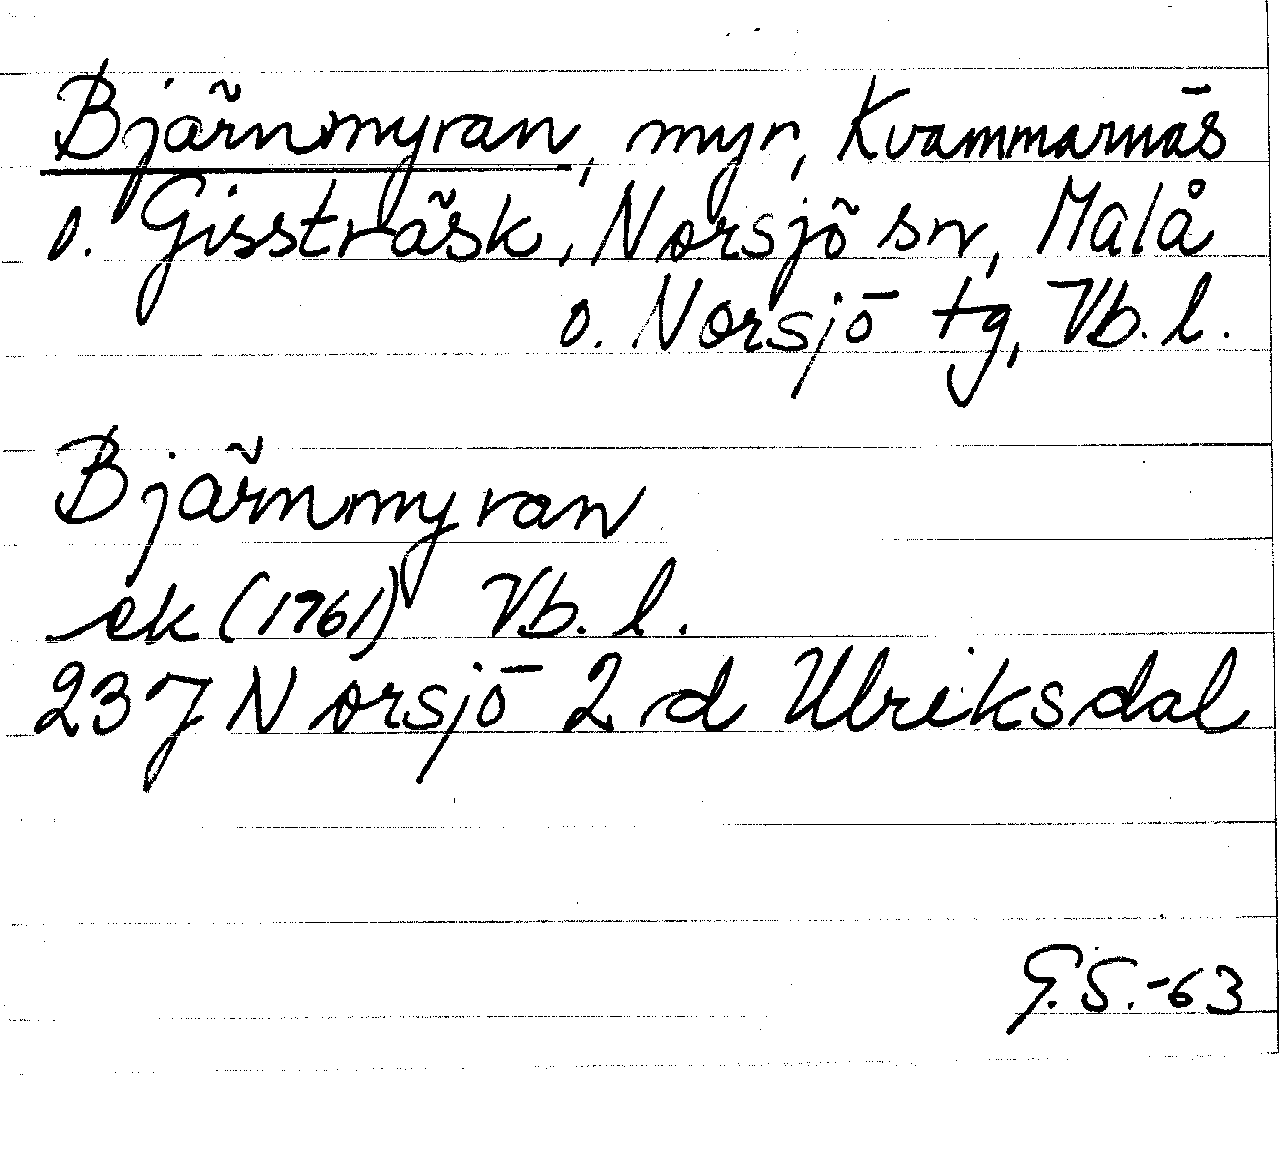 Bjärnmyran, myr, Kvammarnäs
o. Gissträsk, Norsjö sn, Malå
o. Norsjö tg, Vb. l.
Bjärnmyran
ek (1961) Vb. l.
23 J Norsjö 2 d Ulriksdal
G.S.-63